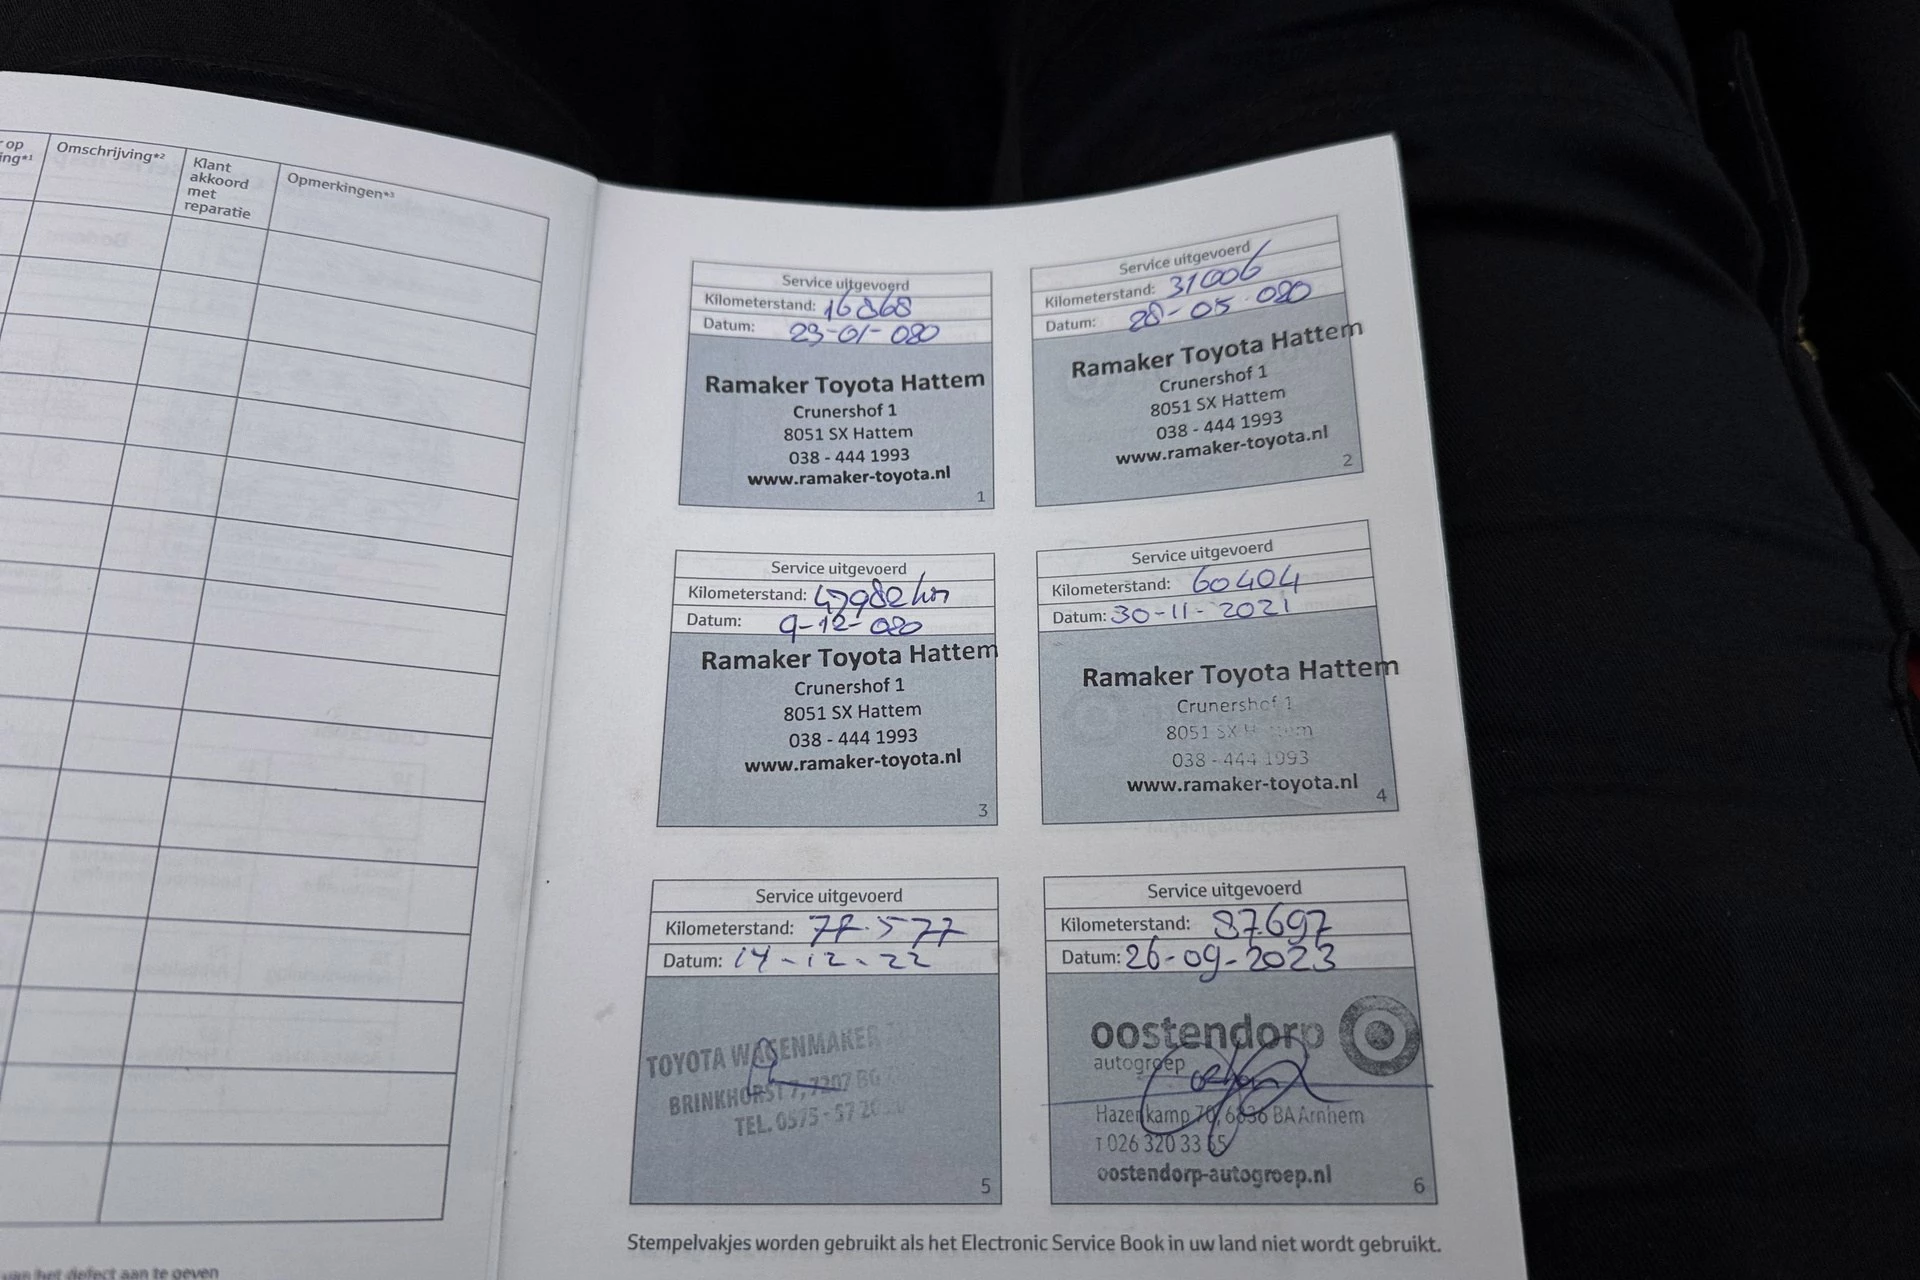 op
ing*¹
Omschrijving*²
Klant
akkoord
met
reparatie
Opmerkingen*³
van het defect aan te geven
Service uitgevoerd
Kilometerstand: 16868
Datum: 23-01-020
Ramaker Toyota Hattem
Crunershof 1
8051 SX Hattem
038 - 444 1993
www.ramaker-toyota.nl
1
Service uitgevoerd
Kilometerstand: 31006
Datum: 28-05-020
Ramaker Toyota Hattem
Crunershof 1
8051 SX Hattem
038 - 444 1993
www.ramaker-toyota.nl
2
Service uitgevoerd
Kilometerstand: 47982 km
Datum: 9-12-020
Ramaker Toyota Hattem
Crunershof 1
8051 SX Hattem
038 - 444 1993
www.ramaker-toyota.nl
3
Service uitgevoerd
Kilometerstand: 60404
Datum: 30-11-2021
Ramaker Toyota Hattem
Crunershof 1
8051 SX Hattem
038 - 444 1993
www.ramaker-toyota.nl
4
Service uitgevoerd
Kilometerstand: 77.577
Datum: 14-12-22
TOYOTA WAGENMAKER
BRINKHORST 7, 7207 BG
TEL. 0575 - 57
5
Service uitgevoerd
Kilometerstand: 87.697
Datum: 26-09-2023
oostendorp
autogroep
Hazenkamp 70, 6836 BA Arnhem
T 026 320 33 65
oostendorp-autogroep.nl
6
Stempelvakjes worden gebruikt als het Electronic Service Book in uw land niet wordt gebruikt.